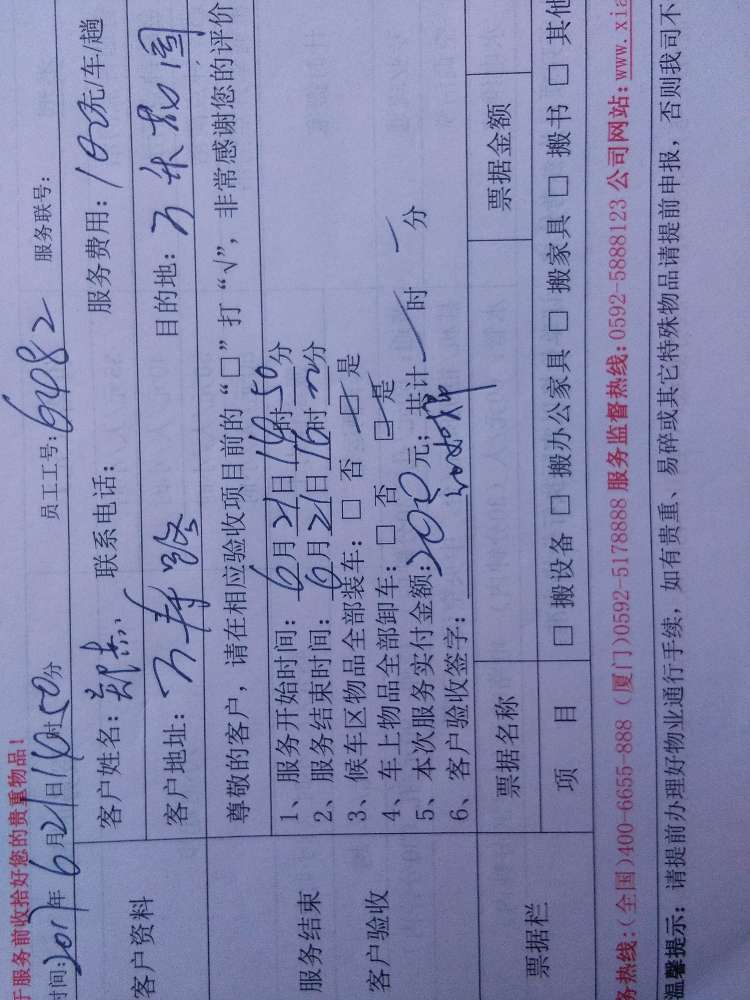 于服务前收拾好您的贵重物品！
时间：2017年6月21日14时50分 员工工号：6482 服务联号：
客户资料
客户姓名：郑杰 联系电话： 服务费用：100元/车/趟
客户地址：万寿路 目的地：
尊敬的客户，请在相应验收项目前的“□”打“√”，非常感谢您的评价
服务结束
客户验收
1、服务开始时间：6月21日14时50分
2、服务结束时间：6月21日16时分
3、候车区物品全部装车：□ 否 ☑ 是
4、车上物品全部卸车：□ 否 ☑ 是
5、本次服务实付金额：200元；共计 时 分
6、客户验收签字：
票据栏
票据名称 票据金额
项 目 □ 搬设备 □ 搬办公家具 □ 搬家具 □ 搬书 □ 其他
务热线：（全国）400-6655-888 （厦门）0592-5178888 服务监督热线：0592-5888123 公司网站：www.xia
温馨提示：请提前办理好物业通行手续，如有贵重、易碎或其它特殊物品请提前申报，否则我司不